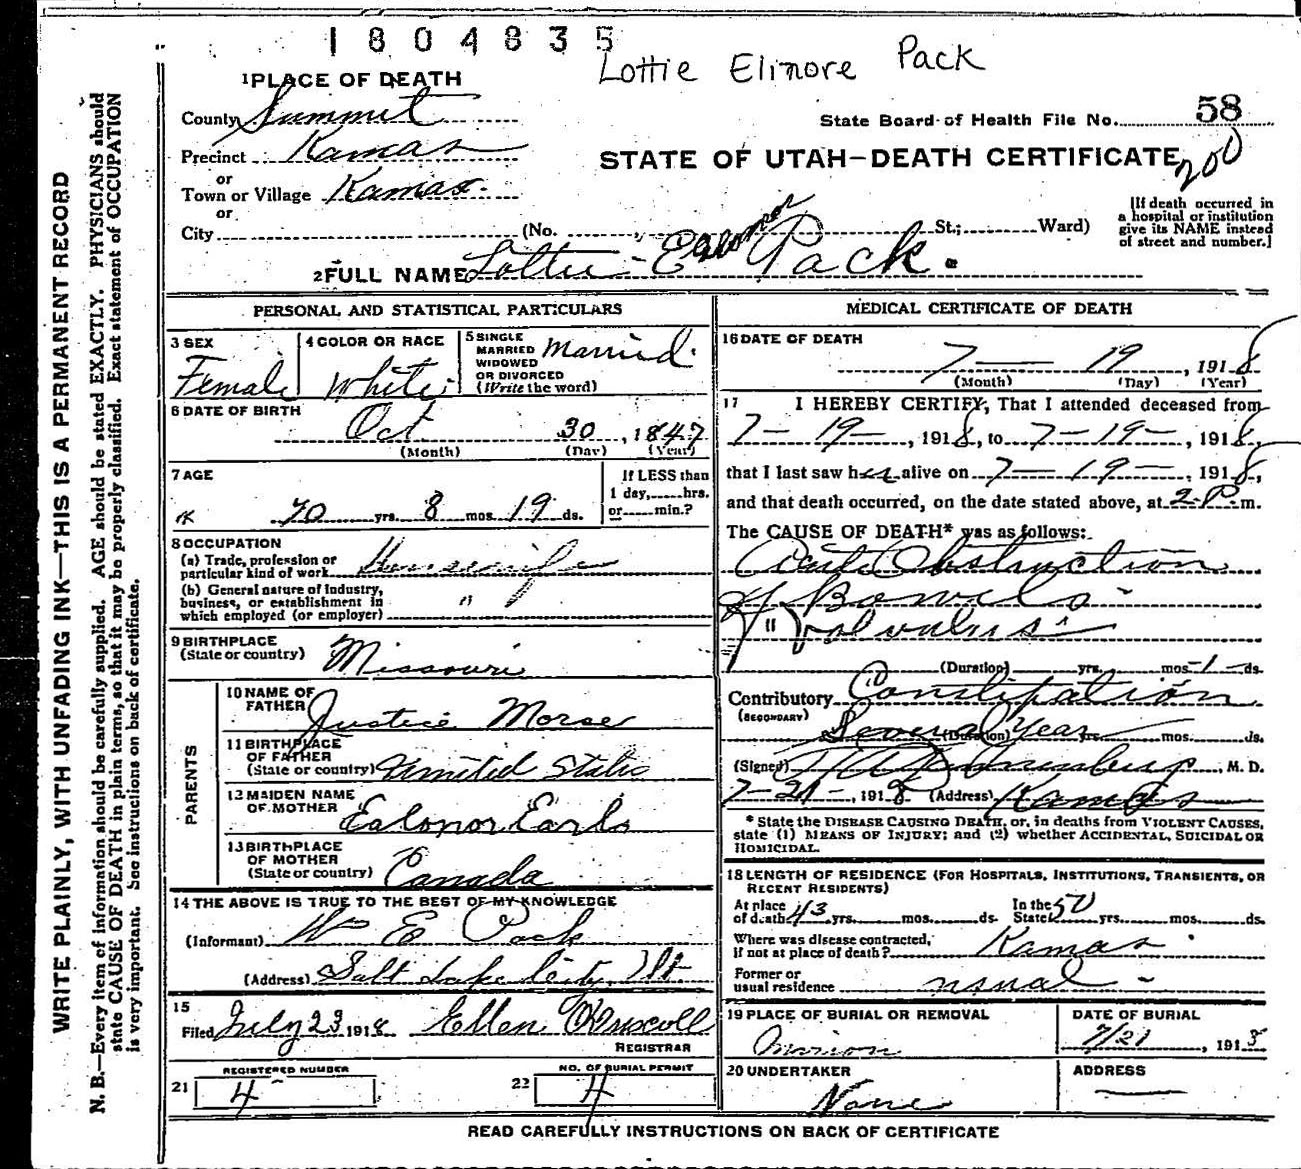 1804835
Lottie Elinore Pack
1 PLACE OF DEATH
County Summit
State Board of Health File No. 58
Precinct Kamas
STATE OF UTAH—DEATH CERTIFICATE
200
or
Town or Village Kamas.
or
City (No. St.; Ward)
[If death occurred in a hospital or institution give its NAME instead of street and number.]
2 FULL NAME Lottie Pack.
PERSONAL AND STATISTICAL PARTICULARS
3 SEX
Female
4 COLOR OR RACE
White
5 SINGLE MARRIED WIDOWED OR DIVORCED (Write the word)
Married
6 DATE OF BIRTH
Oct 30, 1847
(Month) (Day) (Year)
7 AGE
70 yrs. 8 mos. 19 ds.
If LESS than 1 day, hrs. or min.?
8 OCCUPATION
(a) Trade, profession or particular kind of work Housewife
(b) General nature of industry, business, or establishment in which employed (or employer) "
9 BIRTHPLACE
(State or country) Missouri
PARENTS
10 NAME OF FATHER Justice Morse
11 BIRTHPLACE OF FATHER (State or country) United States
12 MAIDEN NAME OF MOTHER Ealonor Earls
13 BIRTHPLACE OF MOTHER (State or country) Canada
14 THE ABOVE IS TRUE TO THE BEST OF MY KNOWLEDGE
(Informant) Wm E Pack
(Address) Salt Lake City, Ut
15
Filed July 23 1918 Ellen O'Driscoll
REGISTRAR
21 REGISTERED NUMBER
4
22 NO. OF BURIAL PERMIT
4
MEDICAL CERTIFICATE OF DEATH
16 DATE OF DEATH
7 — 19, 1918
(Month) (Day) (Year)
17 I HEREBY CERTIFY, That I attended deceased from
7 — 19 —, 1918, to 7 — 19 —, 1918,
that I last saw her alive on 7 — 19 —, 1918,
and that death occurred, on the date stated above, at 2 P m.
The CAUSE OF DEATH* was as follows:
Acute Obstruction
of Bowels -
" Volvulus
(Duration) yrs. mos. 1 ds.
Contributory Constipation
(SECONDARY)
Several Year (Duration) yrs. mos. ds.
(Signed) M. D.
7-21-, 1918 (Address) Kamas
* State the DISEASE CAUSING DEATH, or, in deaths from VIOLENT CAUSES, state (1) MEANS OF INJURY; and (2) whether ACCIDENTAL, SUICIDAL OR HOMICIDAL.
18 LENGTH OF RESIDENCE (FOR HOSPITALS, INSTITUTIONS, TRANSIENTS, OR RECENT RESIDENTS)
At place of death 43 yrs. mos. ds. In the State 50 yrs. mos. ds.
Where was disease contracted, if not at place of death? Kamas
Former or usual residence usual -
19 PLACE OF BURIAL OR REMOVAL
Marion
DATE OF BURIAL
7/21, 1918
20 UNDERTAKER
None
ADDRESS
—
READ CAREFULLY INSTRUCTIONS ON BACK OF CERTIFICATE
WRITE PLAINLY, WITH UNFADING INK—THIS IS A PERMANENT RECORD
N. B.—Every item of information should be carefully supplied. AGE should be stated EXACTLY. PHYSICIANS should
state CAUSE OF DEATH in plain terms, so that it may be properly classified. Exact statement of OCCUPATION
is very important. See instructions on back of certificate.